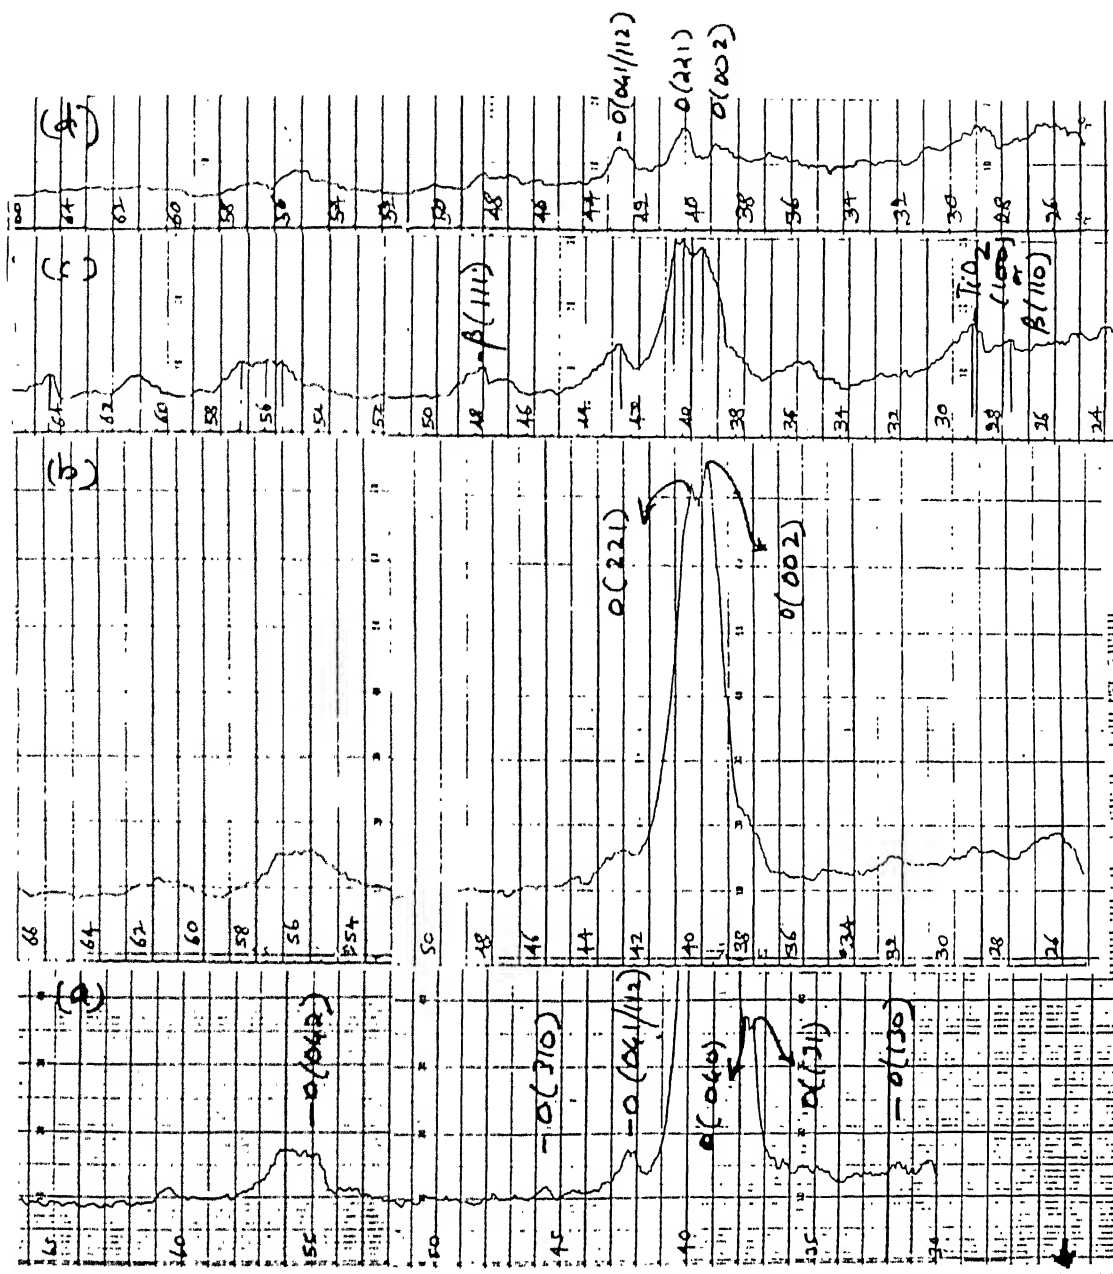 (d)
- O(041/112)
O(221)
O(002)
64
62
60
58
56
54
52
50
48
46
44
42
40
38
36
34
32
30
28
26
(c)
- β(111)
TiO2
(100)
or
β(110)
64
62
60
58
56
54
52
50
48
46
44
42
40
38
36
34
32
30
28
26
24
(b)
O(221)
O(002)
66
64
62
60
58
56
54
50
48
46
44
42
40
38
36
34
32
30
28
26
(a)
- O(042)
- O(310)
- O(041/112)
O(040)
O(131)
- O(130)
65
60
55
50
45
40
35
30